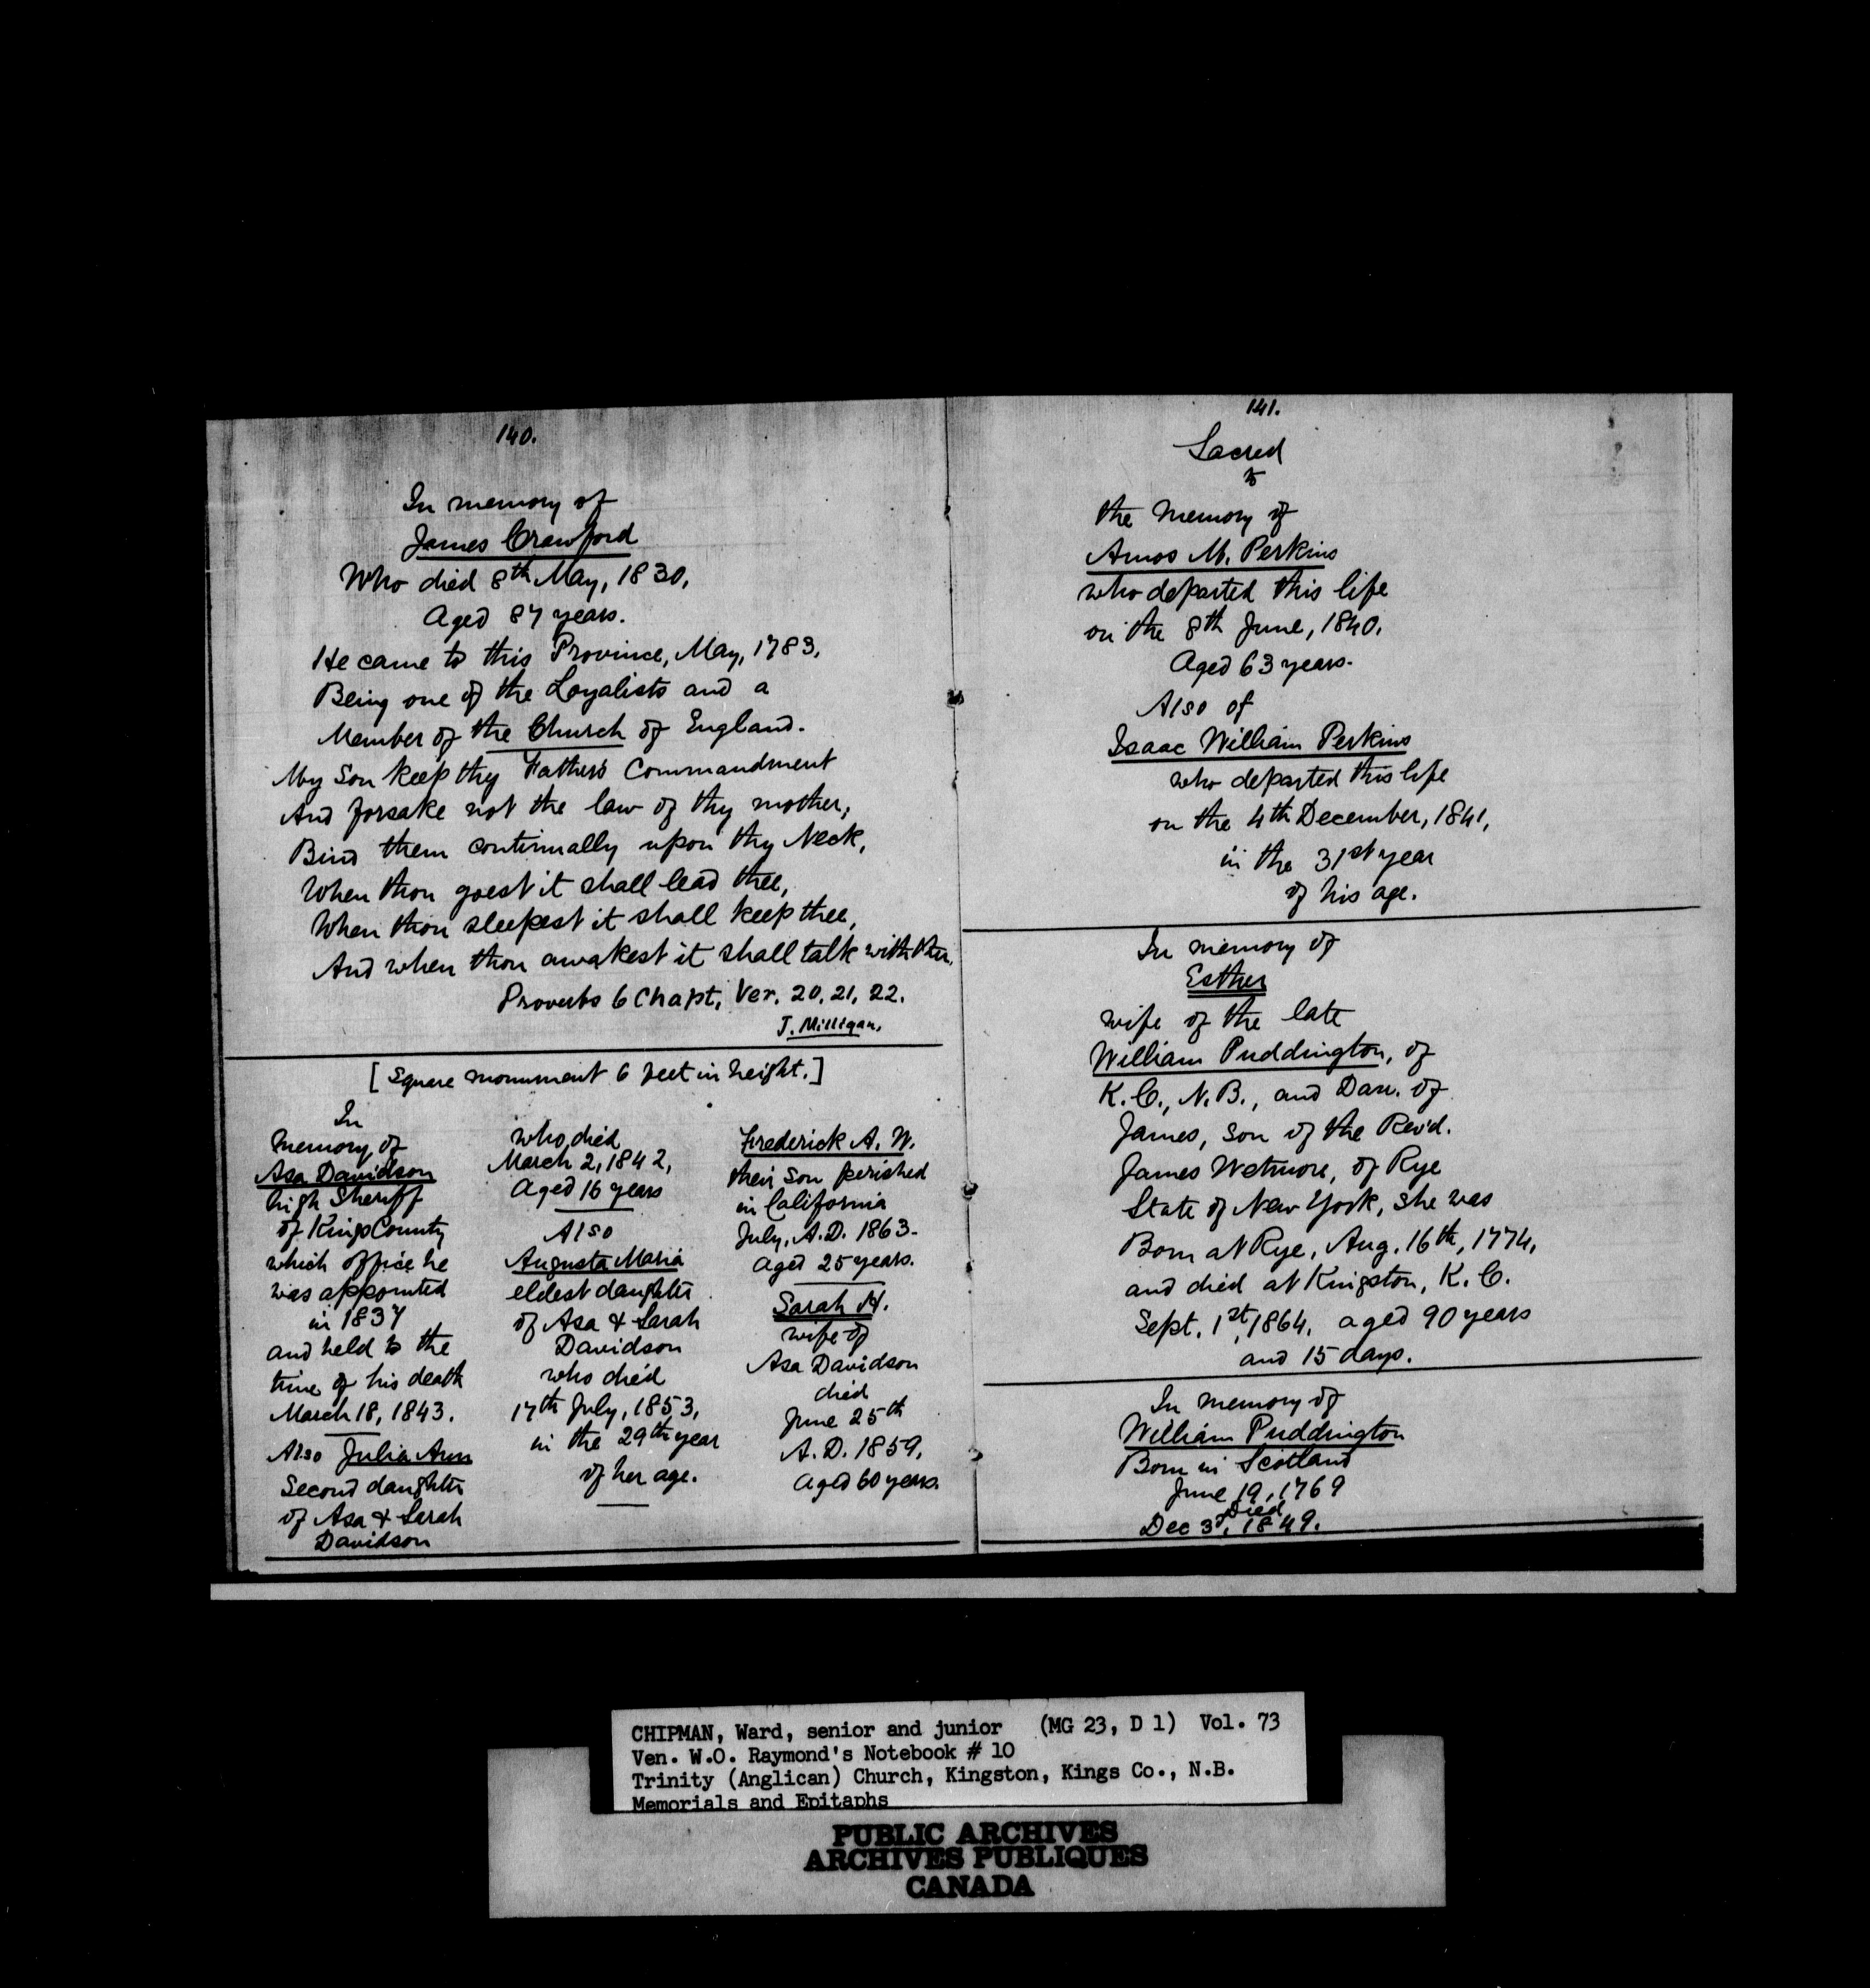 140.
In memory of
James Crawford
Who died 8th May, 1830,
Aged 87 years.
He came to this Province, May, 1783,
Being one of the Loyalists and a
Member of the Church of England.
My Son keep thy Father's Commandment
And forsake not the law of thy mother,
Bind them continually upon thy Neck,
When thou goest it shall lead thee,
When thou sleepest it shall keep thee,
And when thou awakest it shall talk with thee.
Proverbs 6 Chapt. Ver. 20, 21, 22.
J. Milligan.
[Square monument 6 feet in height.]
In
memory of
Asa Davidson
high Sheriff
of Kings County
which office he
was appointed
in 1837
and held to the
time of his death
March 18, 1843.
Also Julia Ann
Second daughter
of Asa & Sarah
Davidson
who died
March 2, 1842,
Aged 16 years
Also
Augusta Maria
eldest daughter
of Asa & Sarah
Davidson
who died
17th July, 1853,
in the 29th year
of her age.
Frederick A. W.
their son perished
in California
July, A.D. 1863.
Aged 25 years.
Sarah H.
wife of
Asa Davidson
died
June 25th
A.D. 1859,
Aged 60 years.
141.
Sacred
to
the Memory of
Amos M. Perkins
who departed this life
on the 8th June, 1840.
Aged 63 years.
Also of
Isaac William Perkins
who departed this life
on the 4th December, 1841,
in the 31st year
of his age.
In memory of
Esther
wife of the late
William Puddington, of
K.C., N.B., and Dau. of
James, son of the Rev'd.
James Wetmore, of Rye
State of New York, she was
Born at Rye, Aug. 16th, 1774,
and died at Kingston, K.C.
Sept. 1st, 1864, aged 90 years
and 15 days.
In memory of
William Puddington
Born in Scotland
June 19, 1769
Died
Dec 3d, 1849.
CHIPMAN, Ward, senior and junior (MG 23, D 1) Vol. 73
Ven. W.O. Raymond's Notebook # 10
Trinity (Anglican) Church, Kingston, Kings Co., N.B.
Memorials and Epitaphs
PUBLIC ARCHIVES
ARCHIVES PUBLIQUES
CANADA